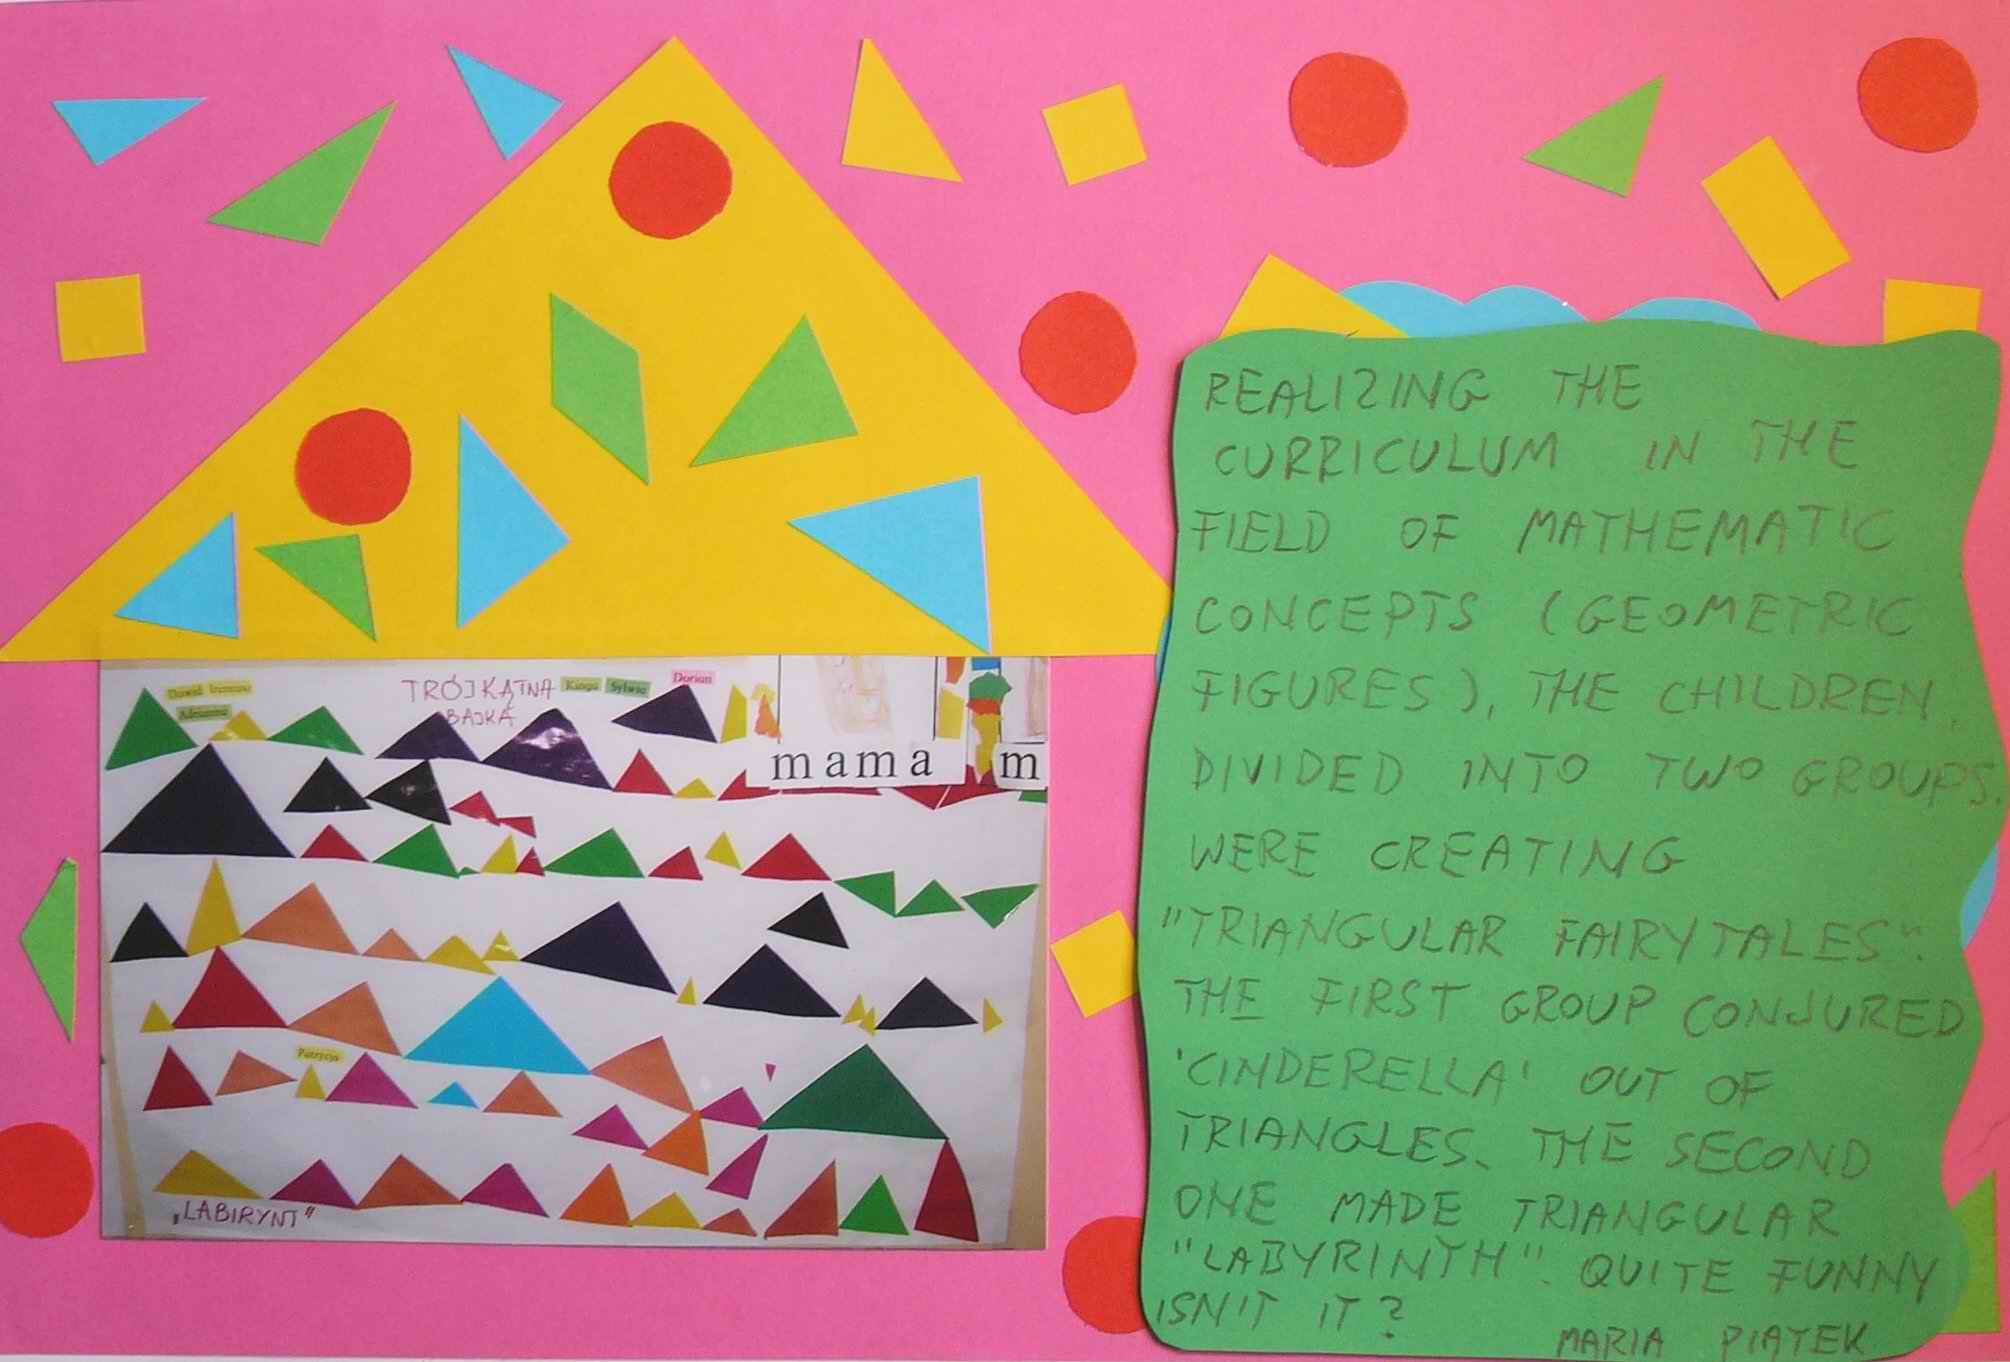 Dawid Ireneusz
Adrianna
TRÓJKĄTNA
BAJKA
Kinga Sylwia Dorian
mama m
Patrycja
„LABIRYNT"
REALIZING THE
CURRICULUM IN THE
FIELD OF MATHEMATIC
CONCEPTS (GEOMETRIC
FIGURES), THE CHILDREN,
DIVIDED INTO TWO GROUPS,
WERE CREATING
"TRIANGULAR FAIRYTALES".
THE FIRST GROUP CONJURED
'CINDERELLA' OUT OF
TRIANGLES. THE SECOND
ONE MADE TRIANGULAR
"LABYRINTH". QUITE FUNNY
ISN'T IT?
MARIA PIATEK